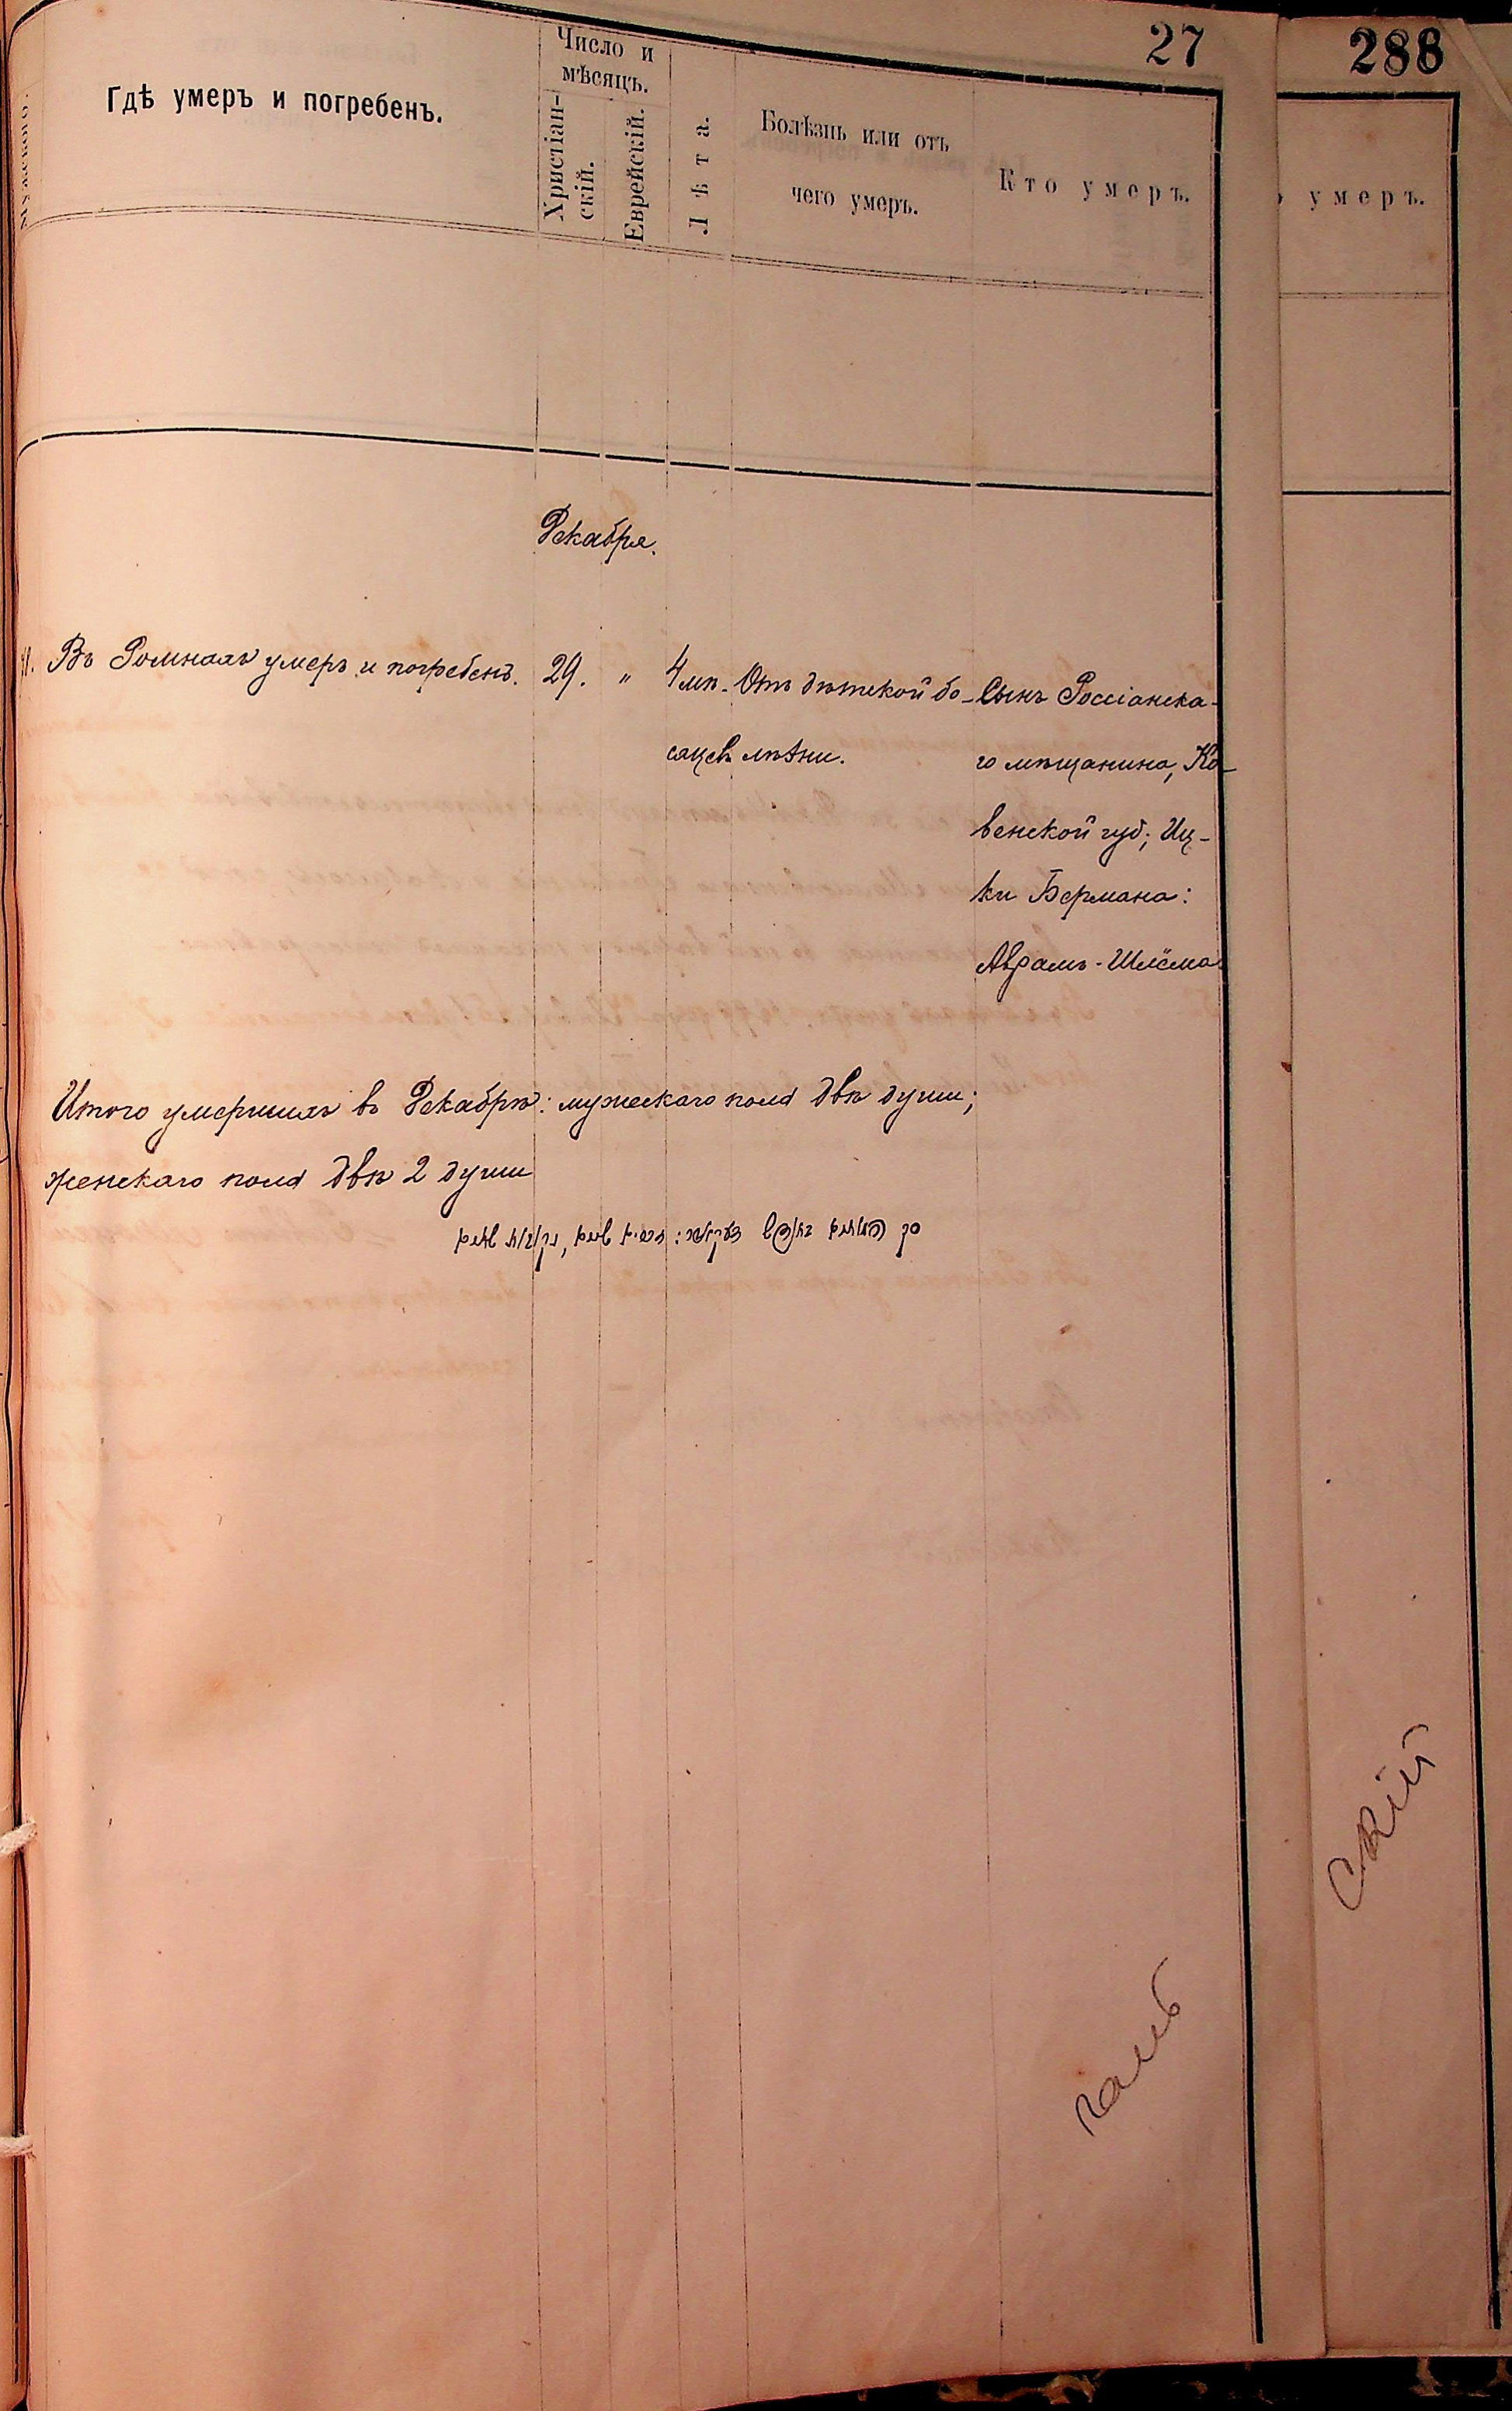 27
288
Гдѣ умеръ и погребенъ.
Число и
мѣсяцъ.
Христіан-
скій.
Еврейскій.
Лѣта.
Болѣзнь или отъ
чего умеръ.
Кто умеръ.
умеръ.
Мужского.
Декабря.
Въ Ромнахъ умеръ и погребенъ. 29. " 4 мѣ- Отъ дѣтской бо- Сынъ Россіанска-
сяцевъ лѣзни. го мѣщанина, Ко-
венской губ; Иц-
ки Бермана:
Абрамъ-Шлёма
Итого умершихъ въ Декабрѣ: мужескаго пола двѣ души;
женскаго пола двѣ 2 души
скій